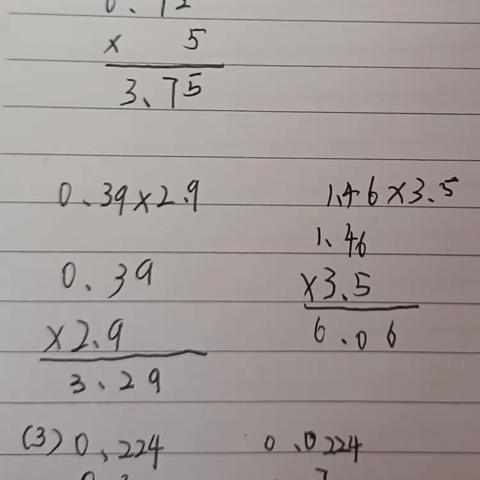 × 5
3.75
0.39×2.9
0.39
×2.9
3.29
1.46×3.5
1.46
×3.5
6.06
(3) 0.224
0.0224